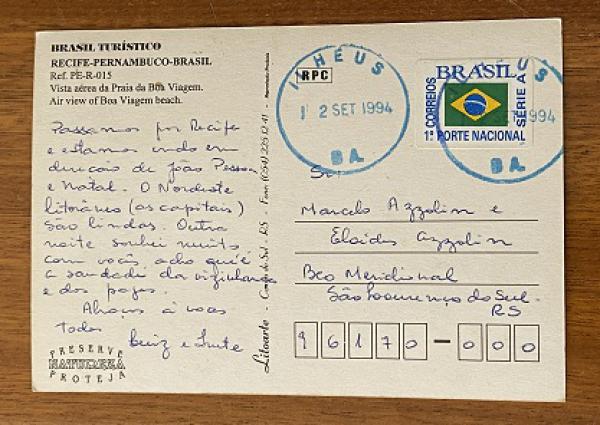 BRASIL TURÍSTICO
RECIFE-PERNAMBUCO-BRASIL
Ref. PE-R-015
Vista aérea da Praia da Boa Viagem.
Air view of Boa Viagem beach.
Passamos por Recife
e estamos indo em
direção de João Pessoa
e Natal. O Nordeste
litorâneo (as capitais)
são lindas. Outra
noite sonhei muito
com vocês acho que é
a saudade da vizinhança
e dos papos.
Abraços à vocês
todos
Luiz e
PRESERVE
NATUREZA
PROTEJA
Litoarte - Caxias do Sul - RS - Fone (054) 225.12.41 -
RPC
ILHÉUS
2 SET 1994
BA
BRASIL
CORREIOS
SÉRIE A
1º PORTE NACIONAL
US
T 1994
BA
Sr.
Marcelo Azzolin e
Eloides Azzolin
Bco Meridional
São Lourenço do Sul -
RS
96170-000